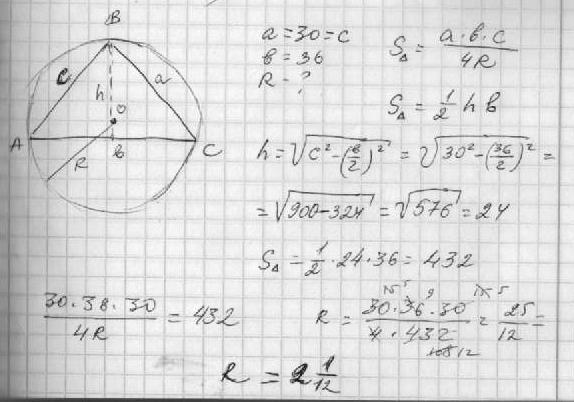 B
c
a
h
O
A
в
C
R
a = 30 = c
в = 36
R - ?
S△ = a · в · c / 4R
S△ = 1/2 h в
h = √(c² - (в/2)²) = √(30² - (36/2)²) =
= √(900 - 324) = √576 = 24
S△ = 1/2 · 24 · 36 = 432
30 · 38 · 30 / 4R = 432
R = 30 · 36 · 30 / 4 · 432 = 25/12 =
15 5 9 15 5
108 12
R = 2 1/12